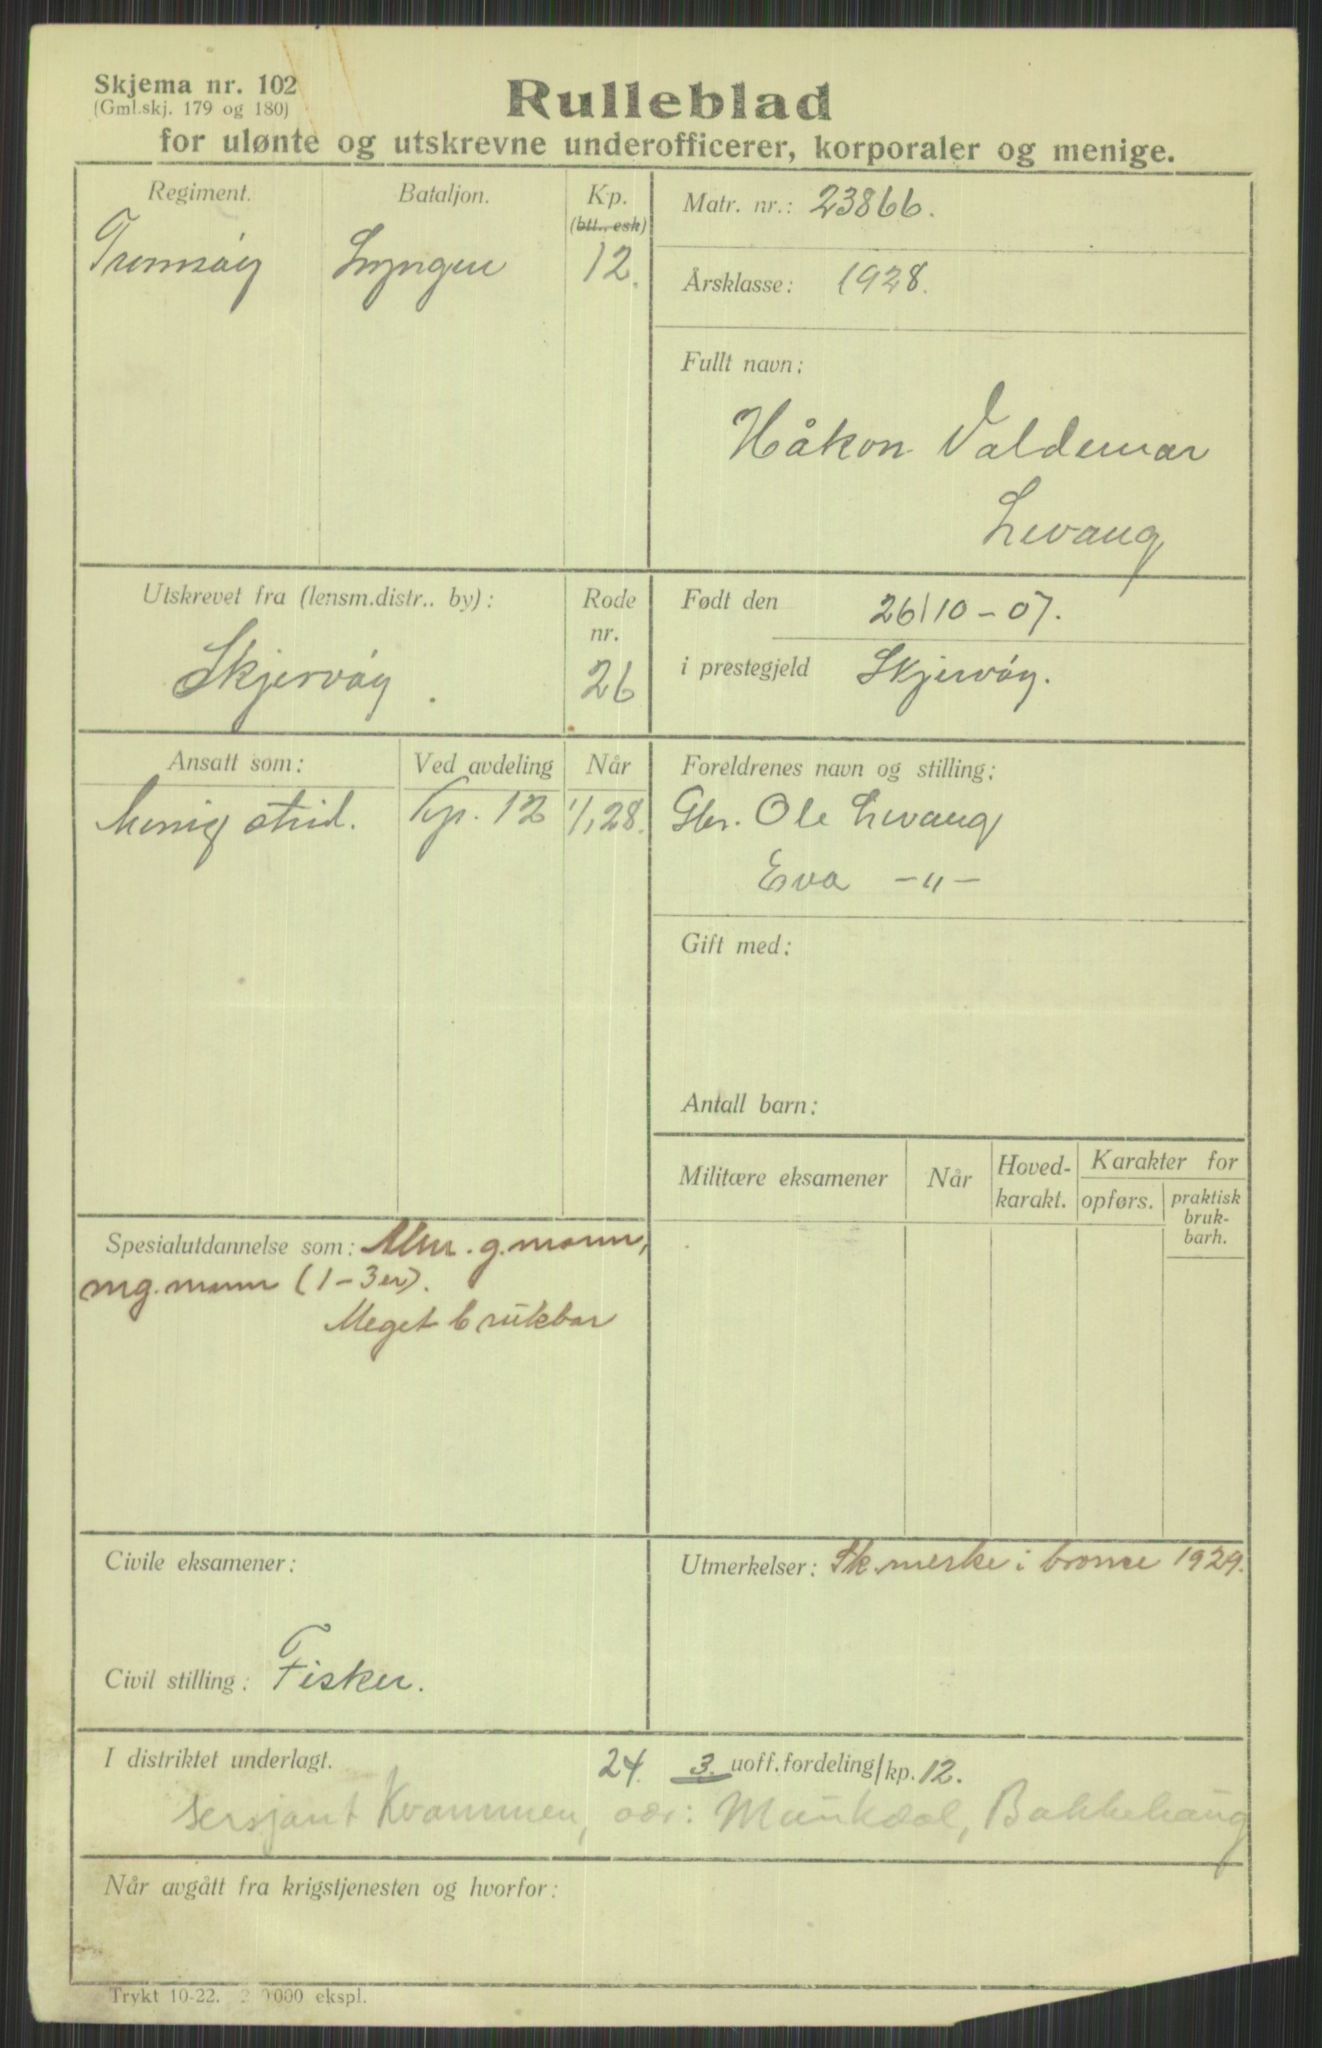 Skjema nr. 102
(Gml.skj. 179 og 180)
Rulleblad
for ulønte og utskrevne underofficerer, korporaler og menige.
Regiment. Bataljon. Kp.
(btl., esk)
Tromsøy Lyngen 12.
Matr. nr.: 23866.
Årsklasse: 1928.
Fullt navn:
Håkon Valdemar
Levang
Utskrevet fra (lensm.distr.. by): Rode
nr.
Skjervøy. 26
Født den 26/10-07.
i prestegjeld Skjervøy.
Ansatt som: Ved avdeling Når
Menig strid. Kp. 12 1/1 28.
Foreldrenes navn og stilling:
Gbr. Ole Levang
Eva -"-
Gift med:
Antall barn:
Militære eksamener Når Hoved-
karakt. Karakter for
opførs. praktisk
bruk-
barh.
Spesialutdannelse som: Alm. g.mann,
mg.mann (1-3er).
Meget brukbar
Civile eksamener:
Civil stilling: Fisker.
Utmerkelser: Sk.merke i bronse 1929.
I distriktet underlagt. 24. 3. uoff.fordeling/kp. 12.
sersjant Kvammen, adr: Munkdal, Bakkehaug
Når avgått fra krigstjenesten og hvorfor:
Trykt 10-22. 000 ekspl.